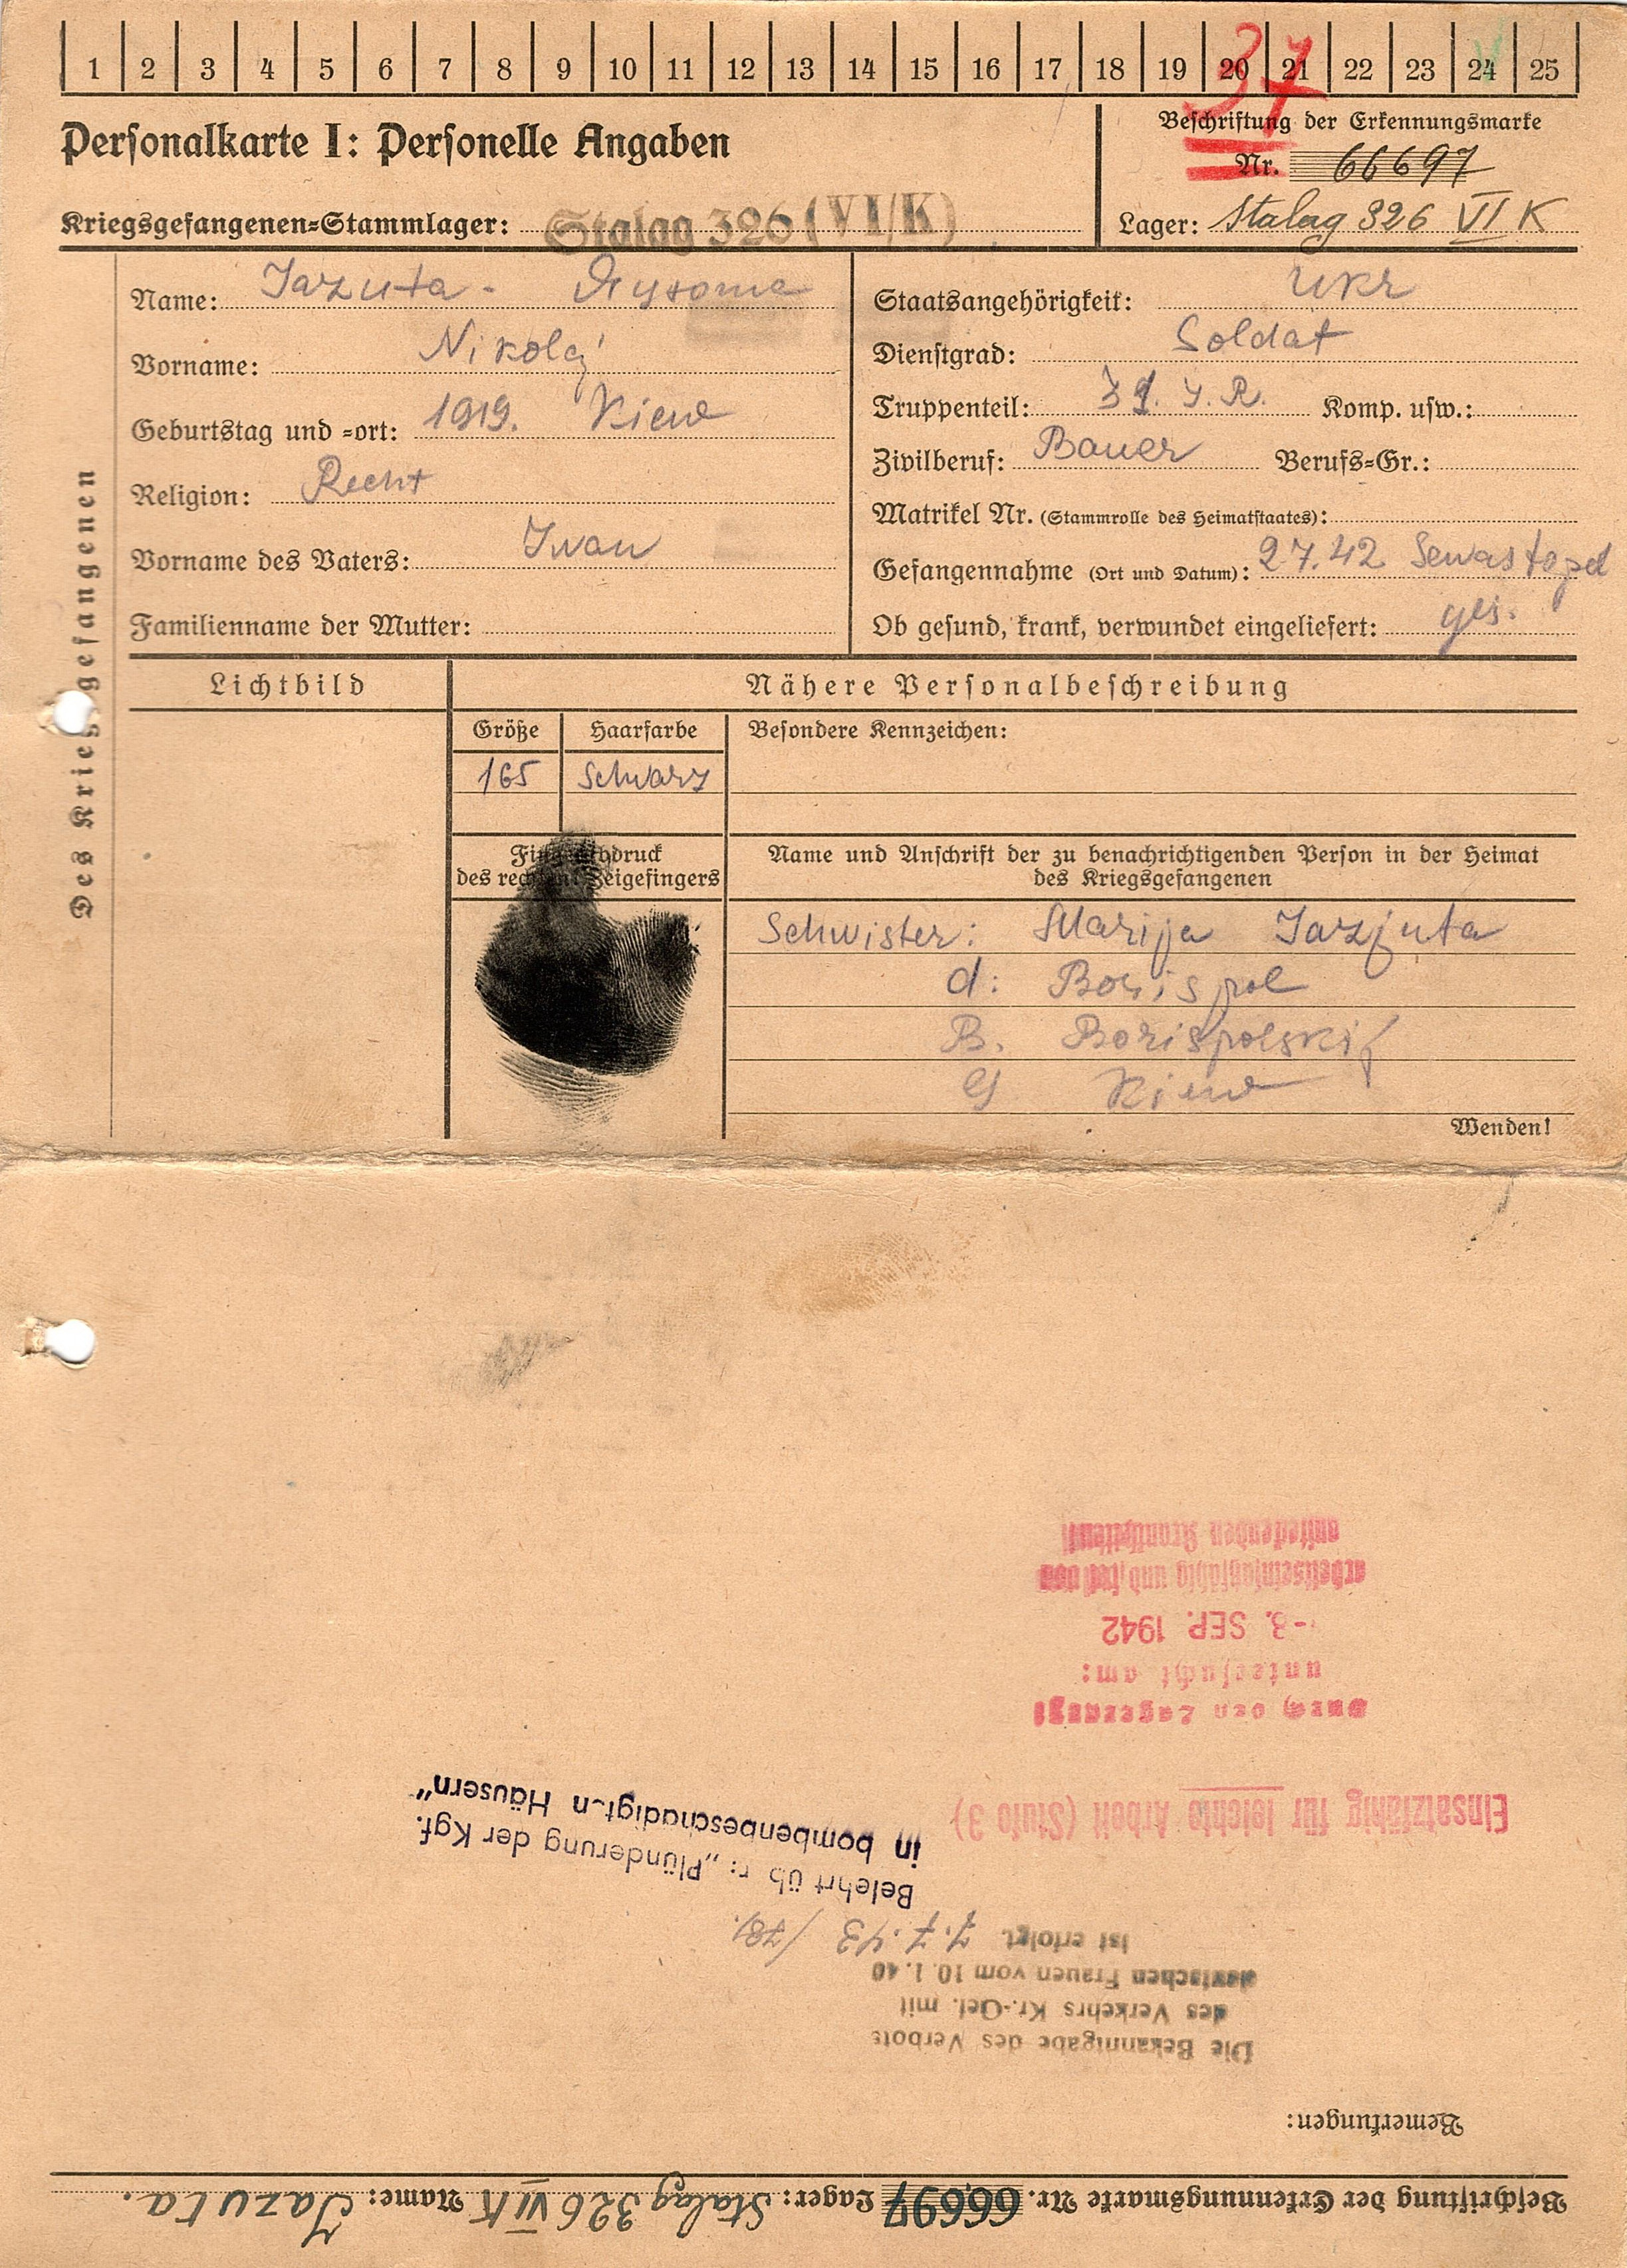 1 2 3 4 5 6 7 8 9 10 11 12 13 14 15 16 17 18 19 20 21 22 23 24 25
37
Personalkarte I: Personelle Angaben
Beschriftung der Erkennungsmarke
Nr. 66697
Kriegsgefangenen=Stammlager: Stalag 326 (VI/K)
Lager: Stalag 326 VI K
Des Kriegsgefangenen
Name: Jazuta -
Vorname: Nikolaj
Geburtstag und =ort: 1919. Kiew
Religion: Recht
Vorname des Vaters: Iwan
Familienname der Mutter:
Staatsangehörigkeit: Ukr
Dienstgrad: Soldat
Truppenteil: J. R. Komp. usw.:
Zivilberuf: Bauer Berufs=Gr.:
Matrikel Nr. (Stammrolle des Heimatstaates):
Gefangennahme (Ort und Datum): 2.7.42 Sewastopol
Ob gesund, krank, verwundet eingeliefert: ges.
Lichtbild
Nähere Personalbeschreibung
Größe Haarfarbe Besondere Kennzeichen:
165 Schwarz
Fingerabdruck
des rechten Zeigefingers
Name und Anschrift der zu benachrichtigenden Person in der Heimat
des Kriegsgefangenen
Schwister: Marija Jazjuta
d: Borispol
B. Borispolskij
G Kiew
Wenden!
Beschriftung der Erkennungsmarke Nr. 66697 Lager: Stalag 326 VI K Name: Jazuta.
Bemerkungen:
Die Bekanntgabe des Verbots
des Verkehrs Kr.-Gef. mit
deutschen Frauen vom 10.1.40
ist erfolgt. 7.7.43
Belehrt üb r: „Plünderung der Kgf.
in bombenbeschädigt n Häusern"
Einsatzfähig für leichte Arbeit (Stufe 3)
Durch den Lagerarzt
untersucht am:
-8. SEP. 1942
arbeitseinsatzfähig und frei von
ansteckenden Krankheiten!